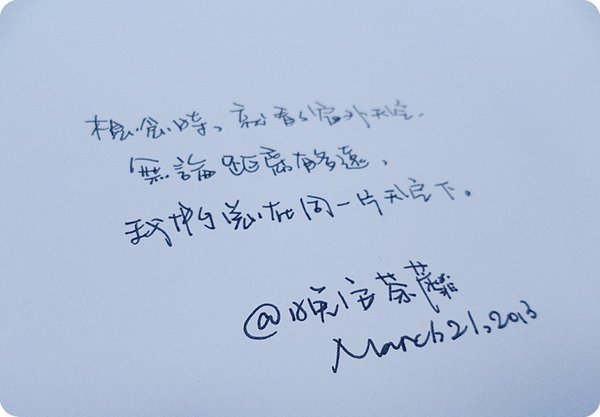 想念時、就看看窗外天空.
無論距離有多遠,
我們總在同一片天空下。
@晚安荼蘼
March,21,2013